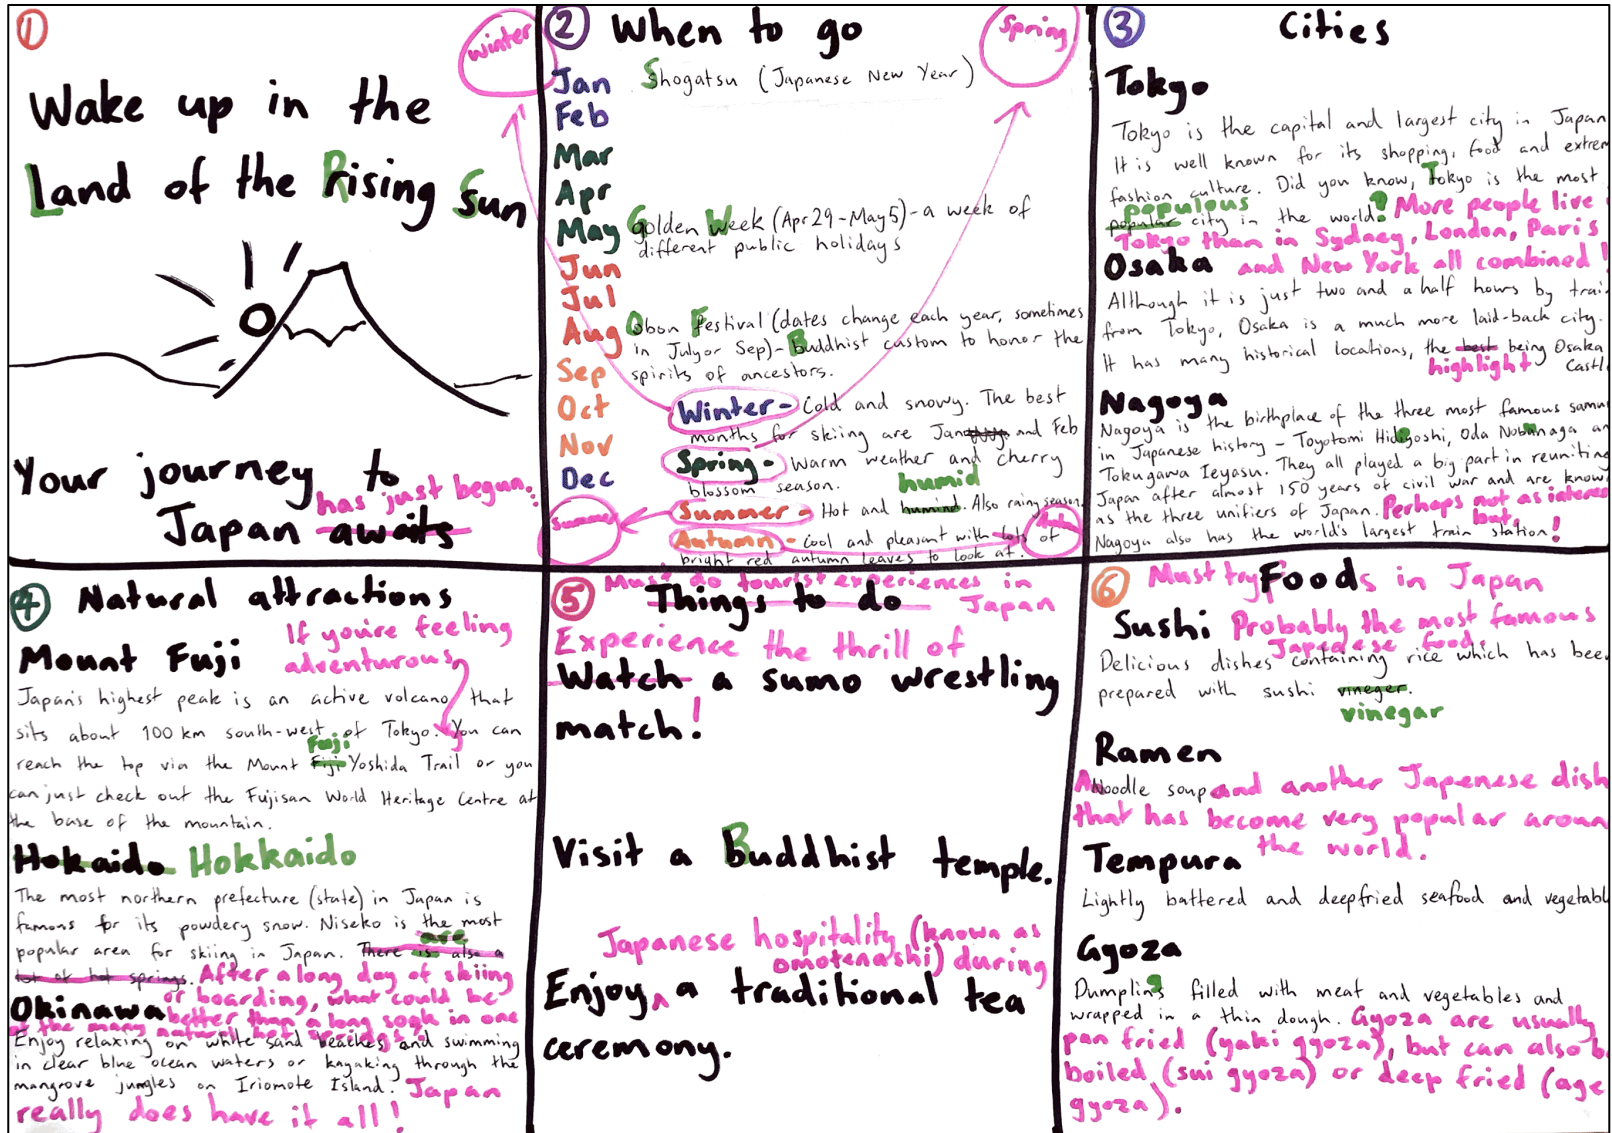 1
Wake up in the
Land of the Rising Sun
Your journey to
has just begun.
Japan awaits
winter
2 When to go
Spring
Jan Shogatsu (Japanese New Year)
Feb
Mar
Apr
May Golden Week (Apr 29-May 5)-a week of
different public holidays
Jun
Jul
Aug Obon Festival (dates change each year, sometimes
in July or Sep)- Buddhist custom to honor the
spirits of ancestors.
Sep
Oct
Nov
Dec
Winter- Cold and snowy. The best
months for skiing are Jan and Feb
Spring- Warm weather and cherry
blossom season.
humid
Summer- Hot and humind. Also rainy season.
Autumn- cool and pleasant with lots of
bright red autumn leaves to look at.
Summer
3 Cities
Tokyo
Tokyo is the capital and largest city in Japan
It is well known for its shopping, food and extrem
fashion culture. Did you know, Tokyo is the most
populous
popular city in the world? More people live
Tokyo than in Sydney, London, Paris
and New York all combined!
Osaka
Although it is just two and a half hours by trai
from Tokyo, Osaka is a much more laid-back city.
It has many historical locations, the best being Osaka
highlight Castl
Nagoya
Nagoya is the birthplace of the three most famous samu
in Japanese history - Toyotomi Hideyoshi, Oda Nobunaga an
Tokugawa Ieyasu. They all played a big part in reuniting
Japan after almost 150 years of civil war and are know
as the three unifiers of Japan. Perhaps not as interes
but,
Nagoya also has the world's largest train station!
4 Natural attractions
Mount Fuji
If you're feeling
adventurous,
Japan's highest peak is an active volcano that
sits about 100 km south-west of Tokyo. You can
Fuji
reach the top via the Mount Fiji Yoshida Trail or you
can just check out the Fujisan World Heritage Centre at
the base of the mountain.
Hokaido Hokkaido
The most northern prefecture (state) in Japan is
famous for its powdery snow. Niseko is the most
are
popular area for skiing in Japan. There is also a
lot of hot springs. After a long day of skiing
or boarding, what could be
better than a long soak in one
of the many natural hot springs
Okinawa
Enjoy relaxing on white sand beaches and swimming
in clear blue ocean waters or kayaking through the
mangrove jungles on Iriomote Island. Japan
really does have it all!
5 Must do tourist experiences in
Japan
Things to do
Experience the thrill of
Watch a sumo wrestling
match!
Visit a Buddhist temple.
Japanese hospitality (known as
omotenashi) during
Enjoy a traditional tea
ceremony.
6 Must try Foods in Japan
Sushi Probably the most famous
Japanese food.
Delicious dishes containing rice which has bee
prepared with sushi vineger.
vinegar
Ramen
A Noodle soup and another Japenese dish
that has become very popular aroun
the world.
Tempura
Lightly battered and deepfried seafood and vegetabl
Gyoza
Dumplings filled with meat and vegetables and
wrapped in a thin dough. Gyoza are usually
pan fried (yaki gyoza), but can also b
boiled (sui gyoza) or deep fried (age
gyoza).